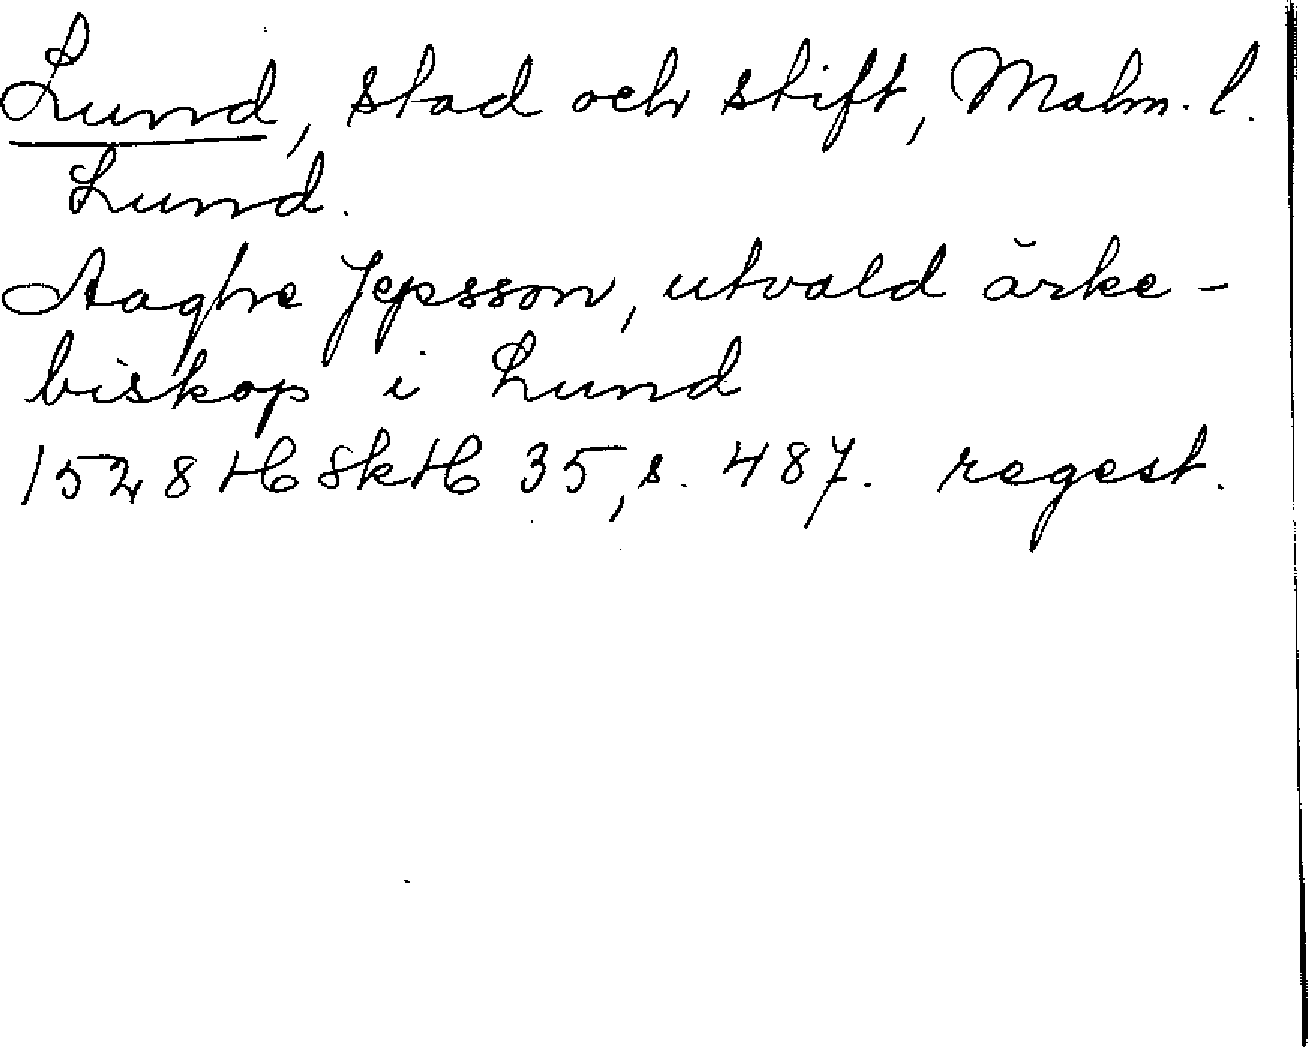 Lund, stad och stift, Malm. l.
Lund.
Aaghe Jepsson, utvald ärke-
biskop i Lund
1528 HSkH 35, s. 487. regest.